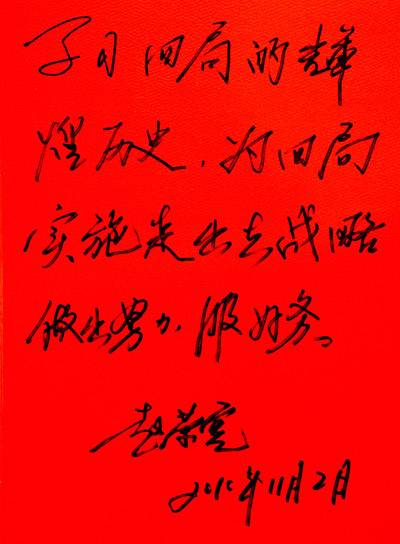 学习四局的辉
煌历史,为四局
实施走出去战略
做出努力,服好务。
赵荣宽
2010年11月2日